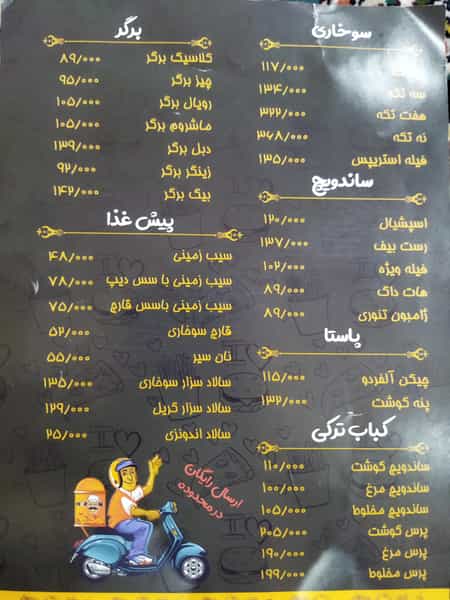 سوخاری
۱۱۷/۰۰۰
سه تکه ۱۳۴/۰۰۰
هفت تکه ۳۲۲/۰۰۰
نه تکه ۳۶۸/۰۰۰
فیله استریپس ۱۳۵/۰۰۰
ساندویچ
اسپشیال ۱۲۰/۰۰۰
رست بیف ۱۳۷/۰۰۰
فیله ویژه ۱۰۲/۰۰۰
هات داگ ۸۹/۰۰۰
ژامبون تنوری ۸۹/۰۰۰
پاستا
چیکن آلفردو ۱۱۵/۰۰۰
پنه گوشت ۱۳۲/۰۰۰
کباب ترکی
ساندویچ گوشت ۱۱۰/۰۰۰
ساندویچ مرغ ۱۰۰/۰۰۰
ساندویچ مخلوط ۱۰۵/۰۰۰
پرس گوشت ۲۰۵/۰۰۰
پرس مرغ ۱۹۰/۰۰۰
پرس مخلوط ۱۹۹/۰۰۰
برگر
کلاسیک برگر ۸۹/۰۰۰
چیز برگر ۹۵/۰۰۰
رویال برگر ۱۰۵/۰۰۰
ماشروم برگر ۱۰۵/۰۰۰
دبل برگر ۱۳۹/۰۰۰
زینگر برگر ۹۲/۰۰۰
بیگ برگر ۱۴۲/۰۰۰
پیش غذا
سیب زمینی ۴۸/۰۰۰
سیب زمینی با سس دیپ ۷۸/۰۰۰
سیب زمینی باسس قارچ ۷۵/۰۰۰
قارچ سوخاری ۵۲/۰۰۰
نان سیر ۵۵/۰۰۰
سالاد سزار سوخاری ۱۳۵/۰۰۰
سالاد سزار گریل ۱۲۹/۰۰۰
سالاد اندونزی ۲۵/۰۰۰
ارسال رایگان
در محدوده